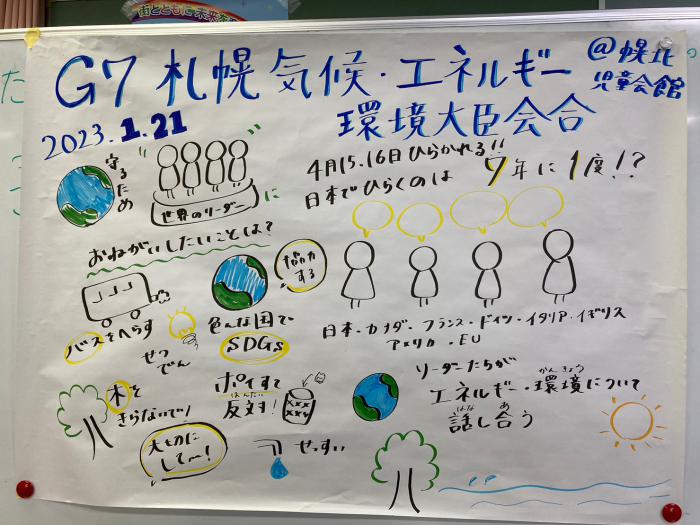 街とともに未来
G7 札幌 気候・エネルギー
環境大臣会合
@幌北
児童会館
2023.1.21
守るため
世界のリーダー
に
4月15.16日ひらかれる!!
日本でひらくのは 7年に1度!?
おねがいしたいことは?
協力
する
バスをへらす
せつ
でん
色んな国で
SDGs
日本・カナダ・フランス・ドイツ・イタリア・イギリス
アメリカ・EU
木を
きらないで!
大切に
して〜!
ポイすて
はんたい
反対!
せっすい
リーダーたちが
かんきょう
エネルギー・環境について
はな あ
話し合う